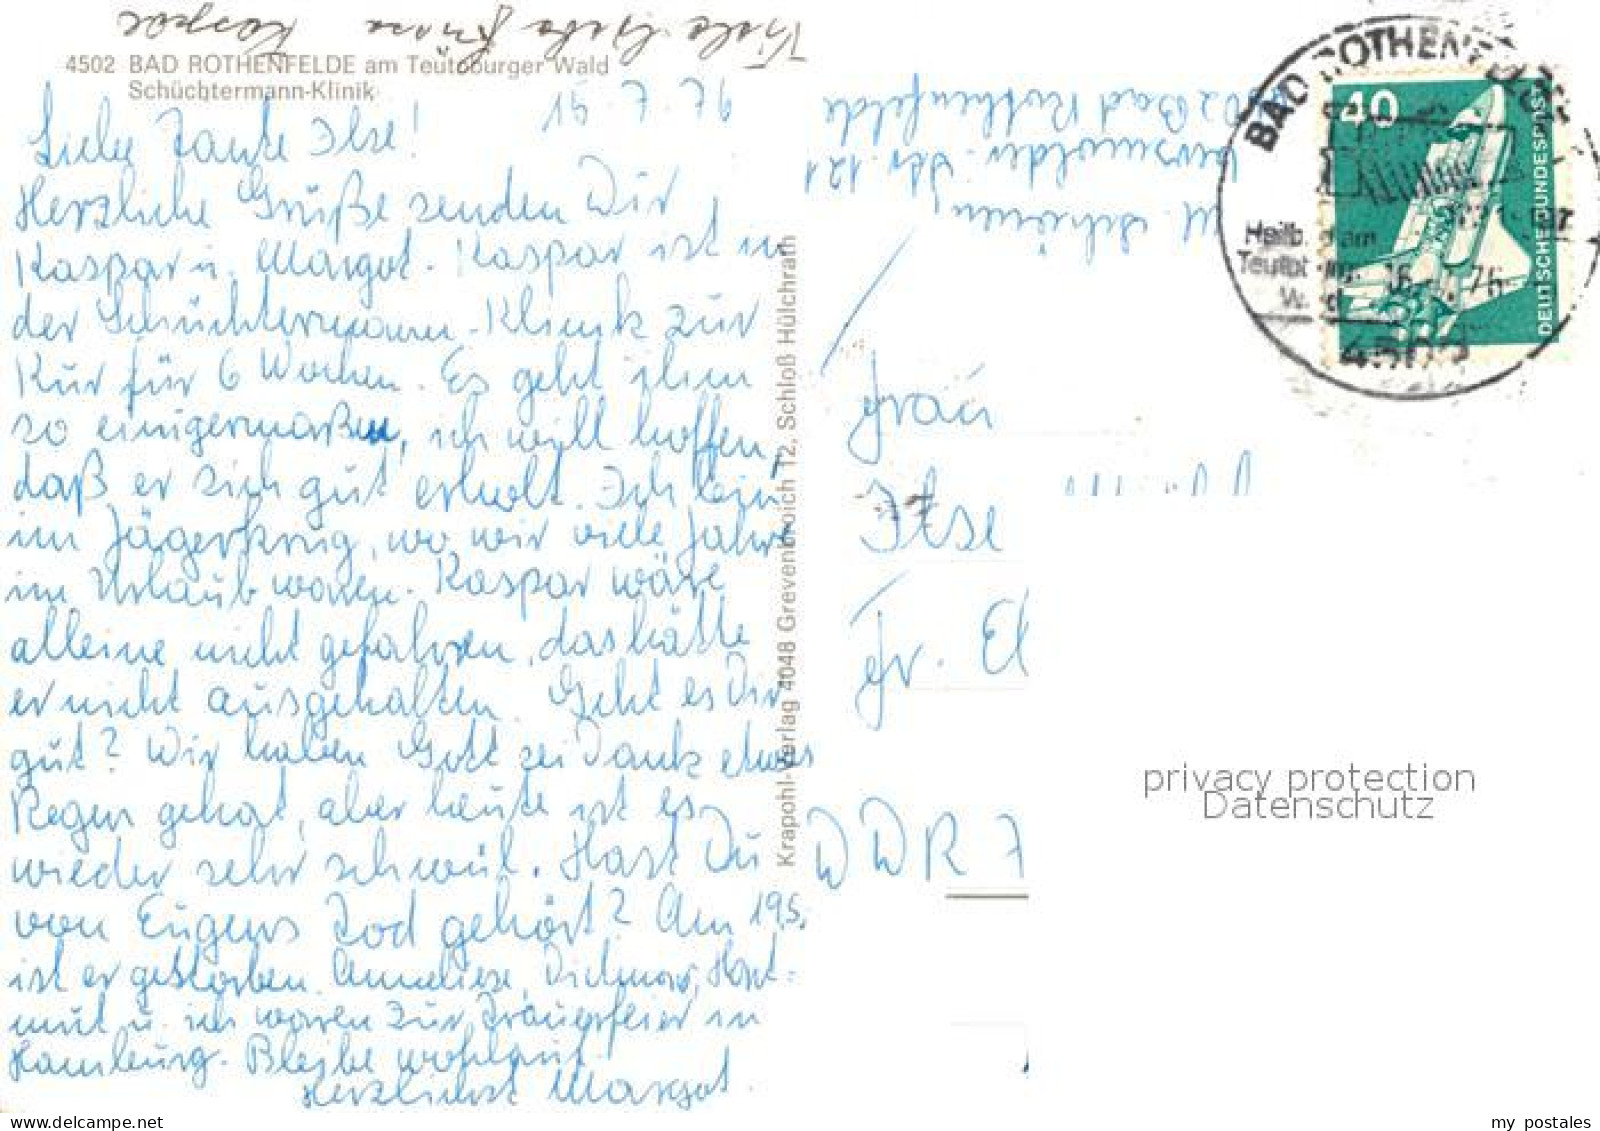 Viele liebe Grüße
Kaspar
4502 BAD ROTHENFELDE am Teutoburger Wald
Schüchtermann-Klinik
15.7.76
Liebe Tante Ilse!
Herzliche Grüße senden Dir
Kaspar u. Margot. Kaspar ist in
der Schüchtermann-Klinik zur
Kur für 6 Wochen. Es geht ihm
so einigermaßen, ich will hoffen,
daß er sich gut erholt. Ich bin
im Jägerkrug, wo wir viele Jahre
im Urlaub waren. Kaspar wäre
alleine nicht gefahren, das hätte
er nicht ausgehalten. Geht es Dir
gut? Wir haben Gott sei Dank etwas
Regen gehabt, aber heute ist es
wieder sehr schwül. Hast Du
von Eugens Tod gehört? Am 19.5.
ist er gestorben. Anneliese, Dietmar, Hart-
mut u. ich waren zur Trauerfeier in
Hamburg. Bleibe wohlauf.
Herzlichst Margot.
Krapohl-Verlag 4048 Grevenbroich 12, Schloß Hülchrath
Versmolder Str. 121
02 Bad Rothenfelde
BAD ROTHENFELDE
Heilb. am
Teutbg.
Wald
4502
40
DEUTSCHE BUNDESPOST
Frau
Ilse
Fr. El
DDR 7
privacy protection
Datenschutz
my_postales